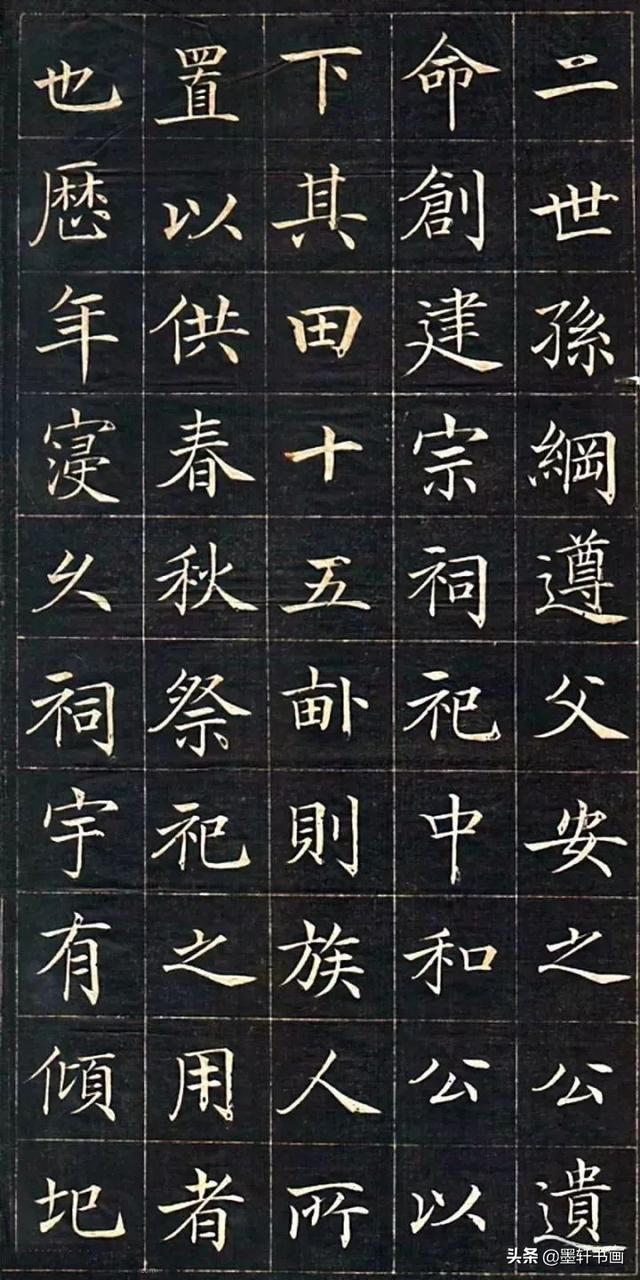 二世孫綱遵父安之公遺
命創建宗祠祀中和公以
下其田十五畝則族人所
置以供春秋祭祀之用者
也歷年寖久祠宇有傾圮
头条 @墨轩书画